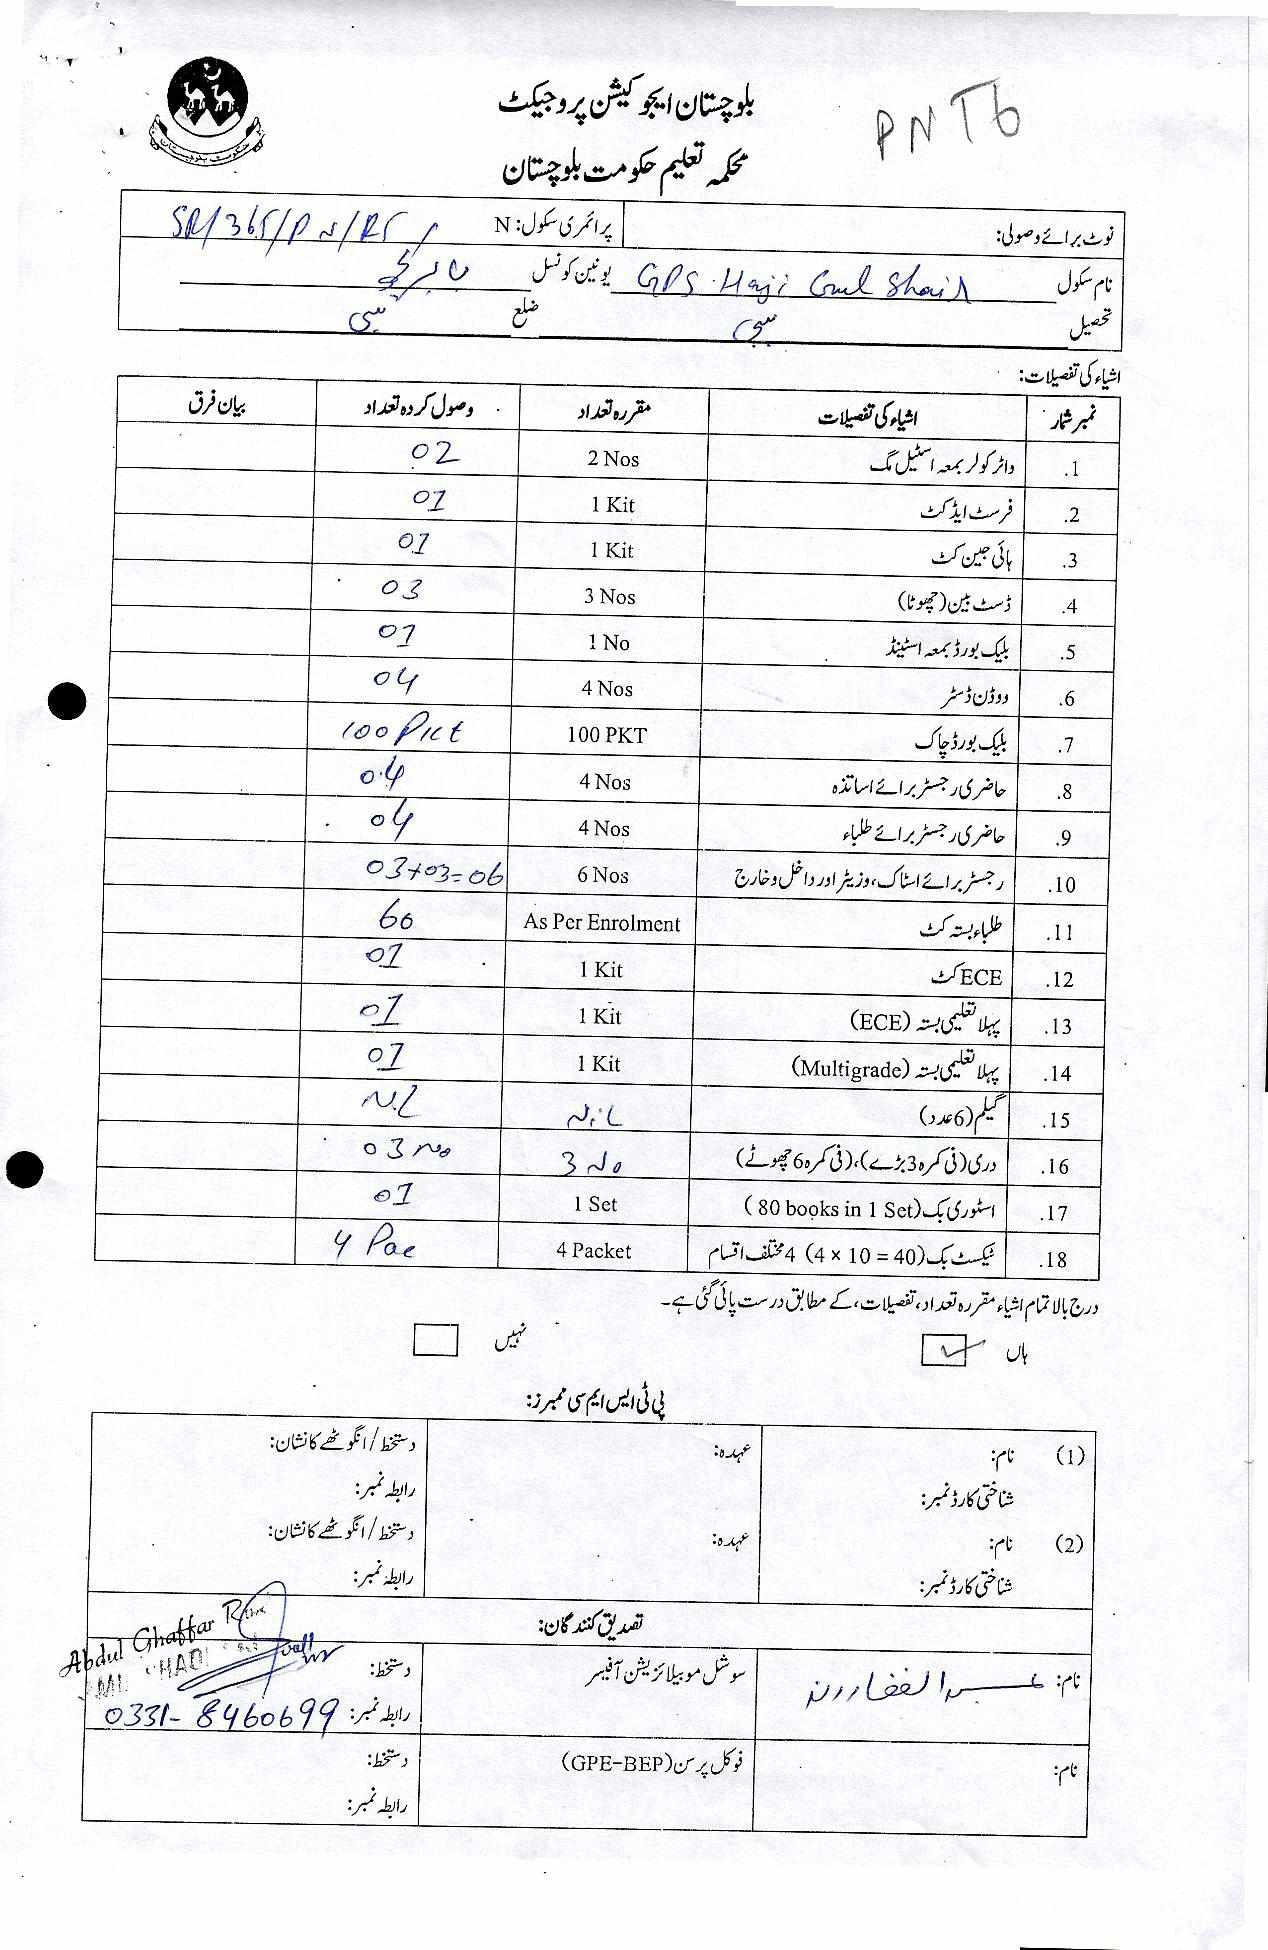 بلوچستان ایجوکیشن پروجیکٹ
PNTb
محکمہ تعلیم حکومت بلوچستان
حکومت بلوچستان
نوٹ برائے وصولی: پرائمری سکول: N SR/365/PN/RS
نام سکول GPS Haji Gul Shair یونین کونسل
تحصیل سبی ضلع سبی
اشیاء کی تفصیلات:
نمبر شمار اشیاء کی تفصیلات مقررہ تعداد وصول کردہ تعداد بیان فرق
1. واٹر کولر بمعہ اسٹیل مگ 2 Nos 02
2. فرسٹ ایڈ کٹ 1 Kit 01
3. ہائی جین کٹ 1 Kit 01
4. ڈسٹ بین (چھوٹا) 3 Nos 03
5. بلیک بورڈ بمعہ اسٹینڈ 1 No 01
6. ووڈن ڈسٹر 4 Nos 04
7. بلیک بورڈ چاک 100 PKT 100 Pkt
8. حاضری رجسٹر برائے اساتذہ 4 Nos 04
9. حاضری رجسٹر برائے طلباء 4 Nos 04
10. رجسٹر برائے اسٹاک، وزیٹر اور داخل و خارج 6 Nos 03+03=06
11. طلباء بستہ کٹ As Per Enrolment 60
12. ECE کٹ 1 Kit 01
13. پہلا تعلیمی بستہ (ECE) 1 Kit 01
14. پہلا تعلیمی بستہ (Multigrade) 1 Kit 01
15. گیلم (6 عدد) NiL NiL
16. دری (فی کمرہ 3 بڑے)، (فی کمرہ 6 چھوٹے) 3 No 03 No
17. اسٹوری بک (80 books in 1 Set) 1 Set 01
18. ٹیکسٹ بک (4 × 10 = 40) 4 مختلف اقسام 4 Packet 4 Pac
درج بالا تمام اشیاء مقررہ تعداد، تفصیلات، کے مطابق درست پائی گئی ہے۔
ہاں ✓ نہیں
پی ٹی ایس ایم سی ممبرز:
(1) نام: عہدہ: دستخط / انگوٹھے کا نشان:
شناختی کارڈ نمبر: رابطہ نمبر:
(2) نام: عہدہ: دستخط / انگوٹھے کا نشان:
شناختی کارڈ نمبر: رابطہ نمبر:
تصدیق کنندگان:
Abdul Ghaffar
نام: عبدالغفار رند سوشل موبیلائزیشن آفیسر دستخط:
رابطہ نمبر: 0331-8460699
نام: فوکل پرسن (GPE-BEP) دستخط:
رابطہ نمبر: